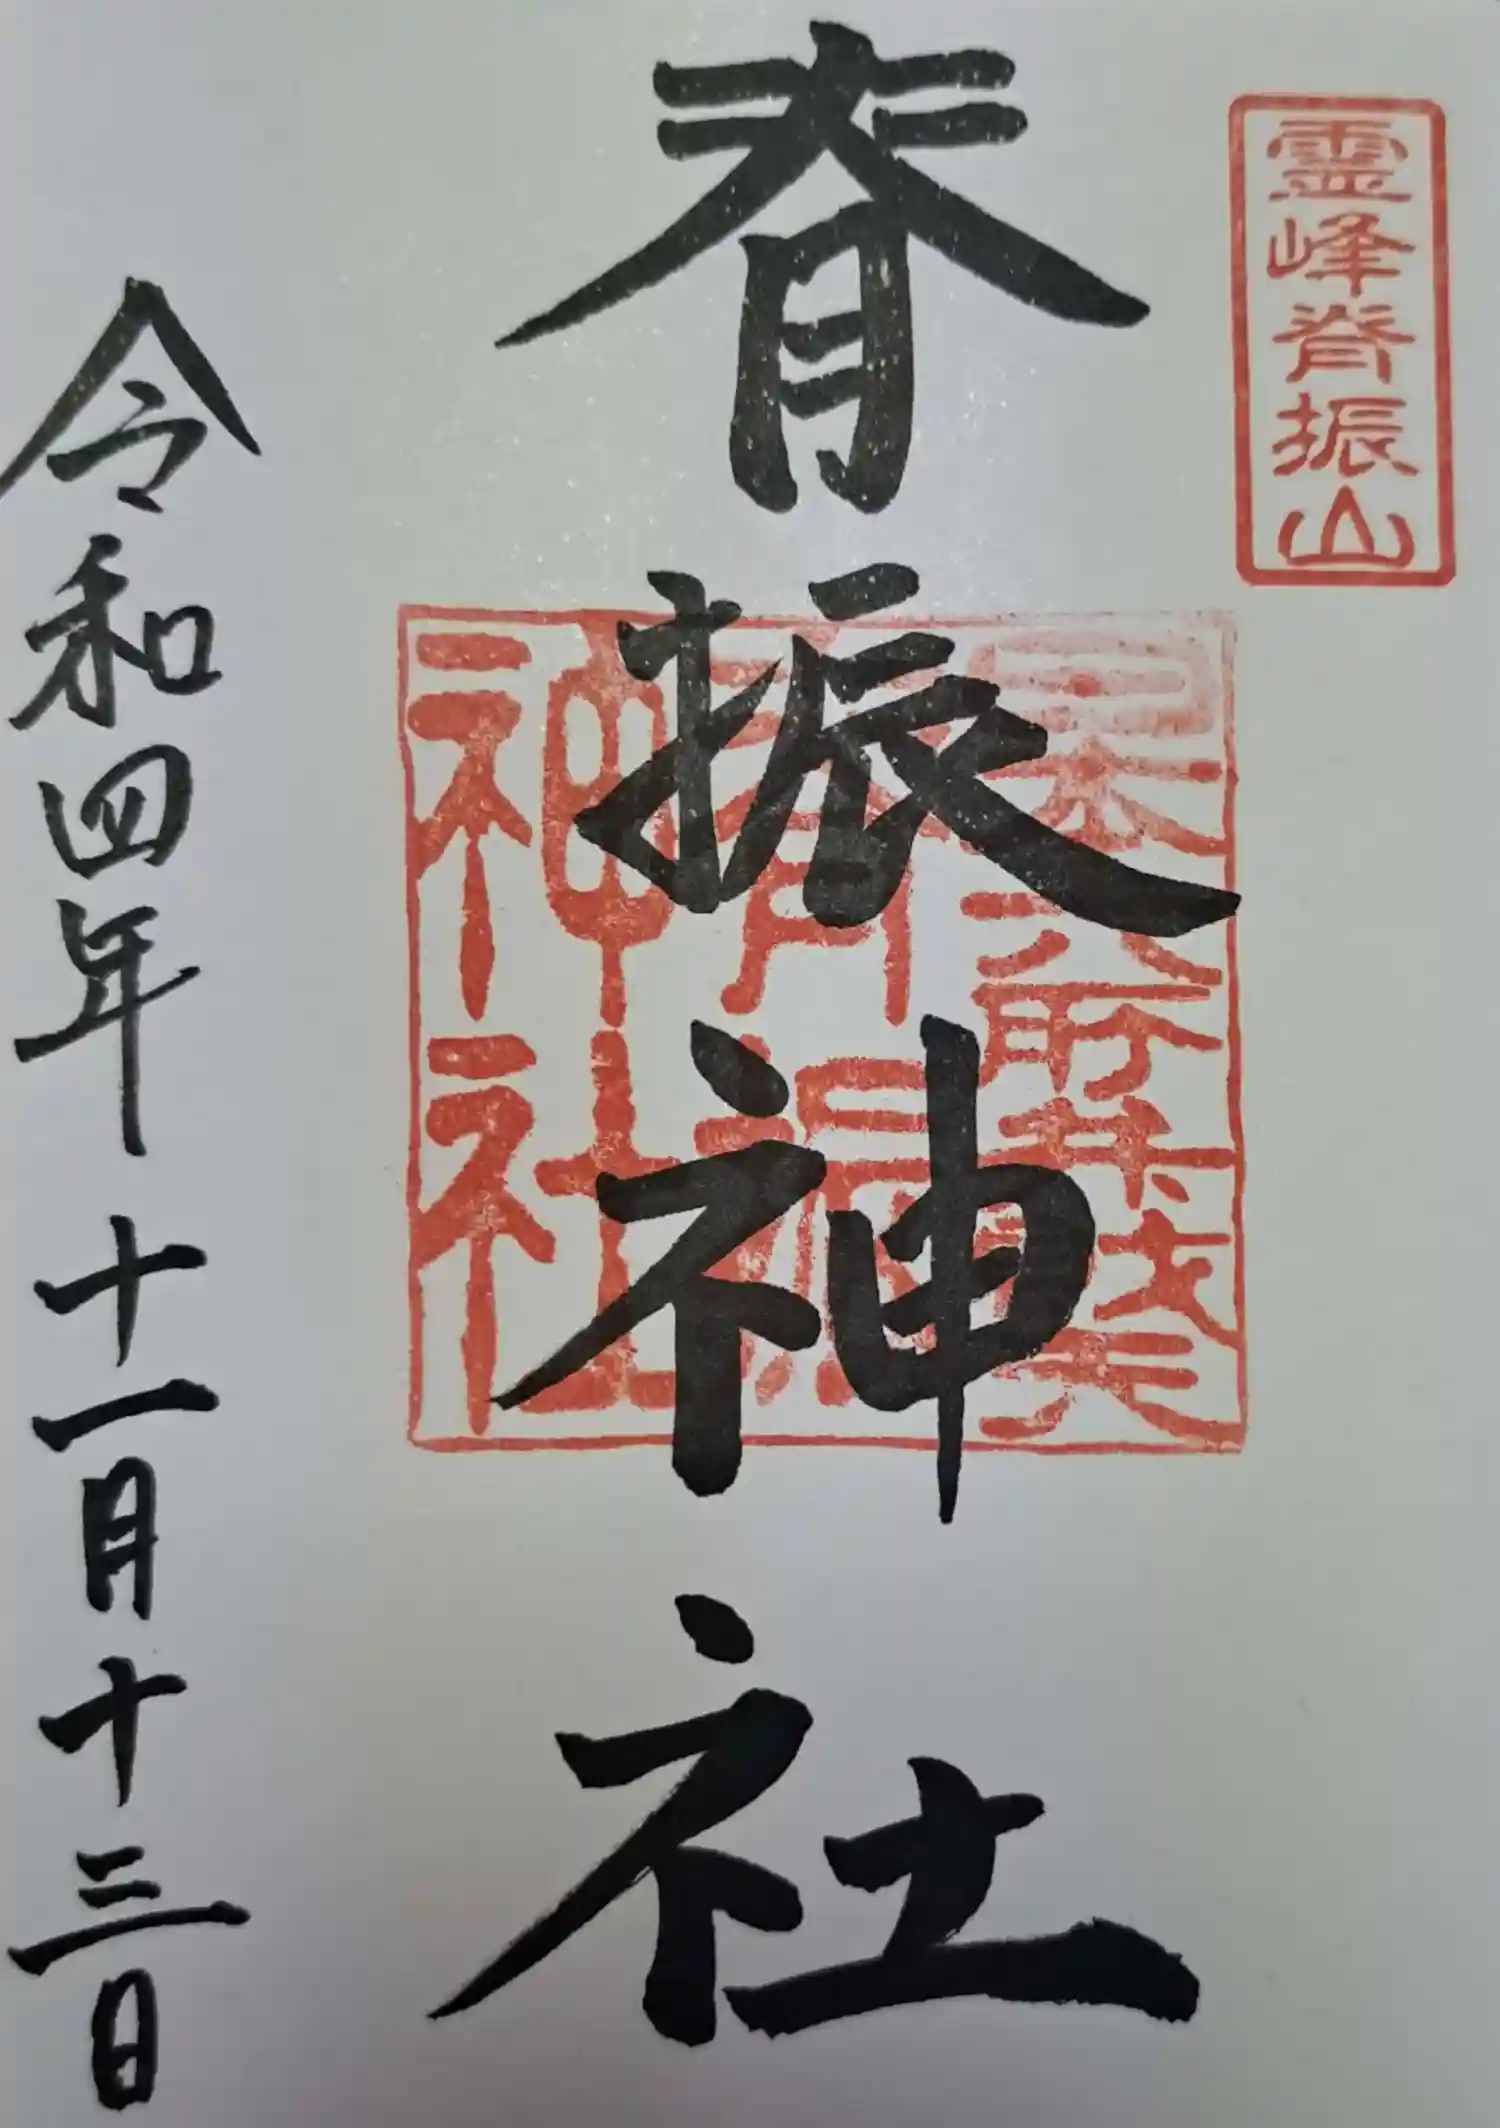 霊峰脊振山
脊振神社
令和四年 十一月十三日